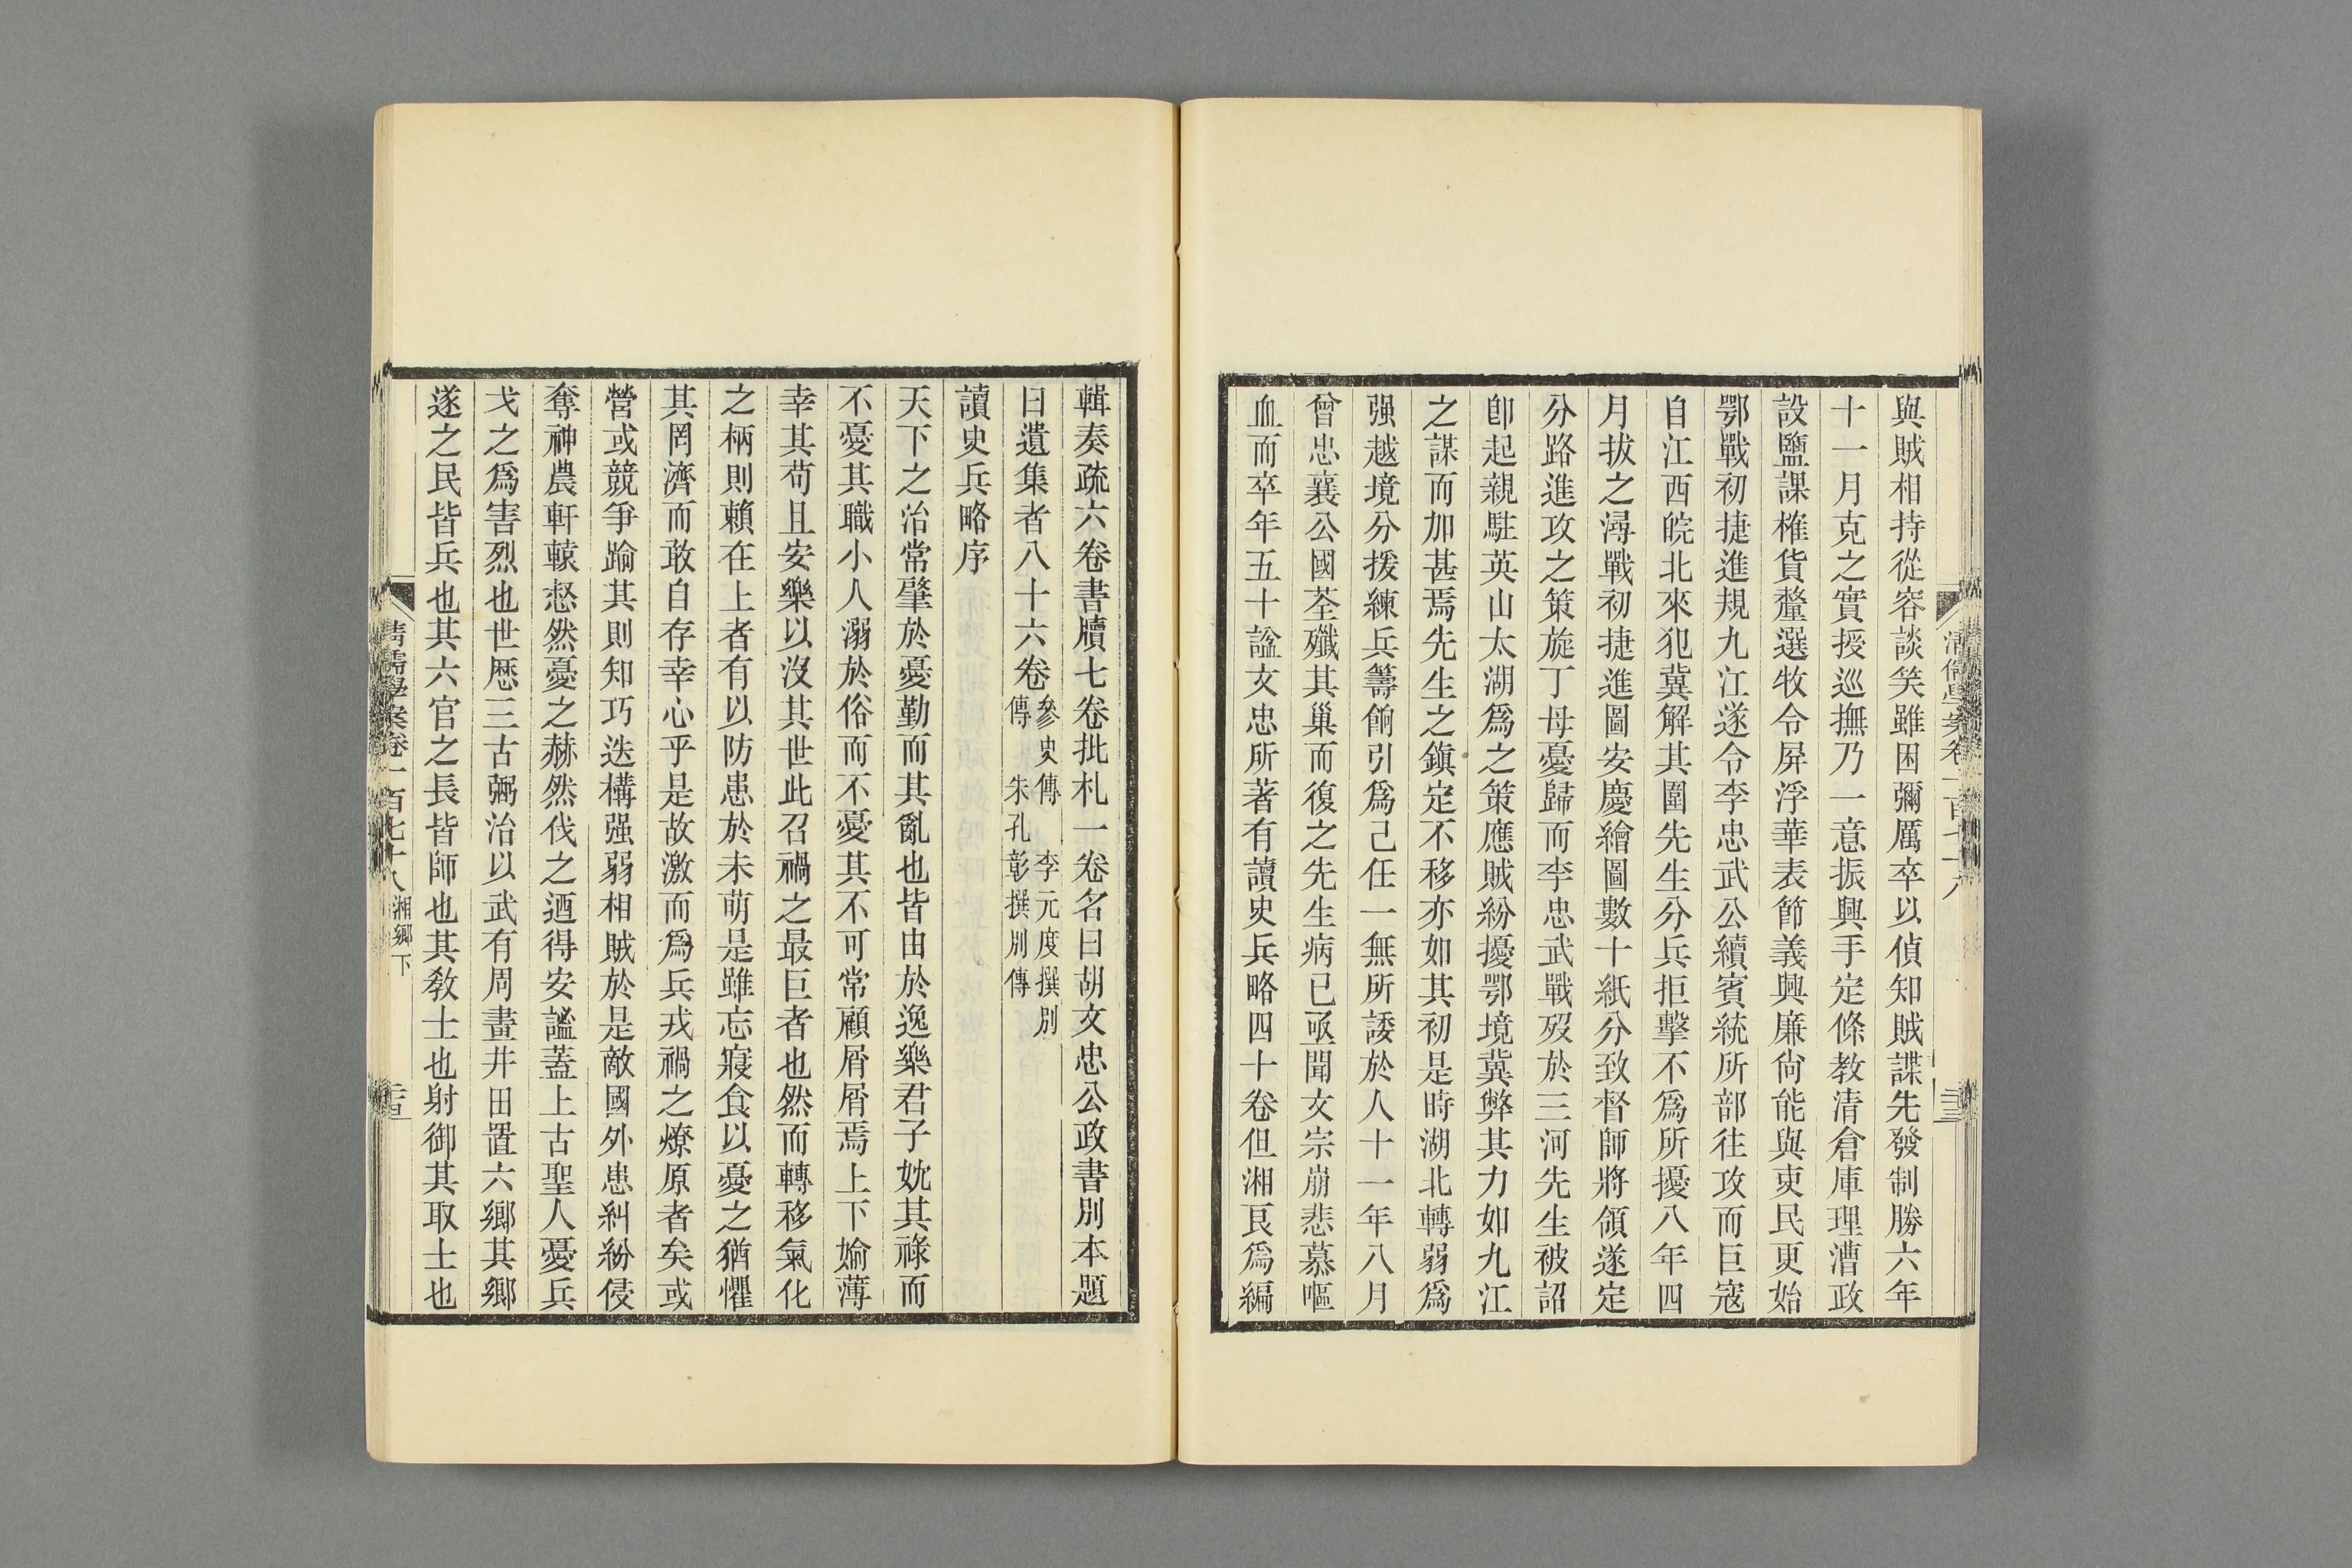 與賊相持從容談笑雖困彌厲卒以偵知賊諜先發制勝六年
十一月克之實授巡撫乃一意振興手定條教清倉庫理漕政
設鹽課榷貨釐選牧令屏浮華表節義興廉尙能與吏民更始
鄂戰初捷進規九江遂令李忠武公續賓統所部往攻而巨寇
自江西皖北來犯冀解其圍先生分兵拒擊不爲所擾八年四
月拔之潯戰初捷進圖安慶繪圖數十紙分致督師將領遂定
分路進攻之策旋丁母憂歸而李忠武戰歿於三河先生被詔
卽起親駐英山太湖爲之策應賊紛擾鄂境冀弊其力如九江
之謀而加甚焉先生之鎭定不移亦如其初是時湖北轉弱爲
强越境分援練兵籌餉引爲己任一無所諉於人十一年八月
曾忠襄公國荃殲其巢而復之先生病已亟聞文宗崩悲慕嘔
血而卒年五十諡文忠所著有讀史兵略四十卷但湘良爲編
輯奏疏六卷書牘七卷批札一卷名曰胡文忠公政書別本題
曰遺集者八十六卷
參史傳 李元度撰別
傳 朱孔彰撰別傳
讀史兵略序
天下之治常肇於憂勤而其亂也皆由於逸樂君子妉其祿而
不憂其職小人溺於俗而不憂其不可常顧屑屑焉上下婾薄
幸其苟且安樂以沒其世此召禍之最巨者也然而轉移氣化
之柄則賴在上者有以防患於未萌是雖忘寢食以憂之猶懼
其罔濟而敢自存幸心乎是故激而爲兵戎禍之燎原者矣或
營或競爭踰其則知巧迭構强弱相賊於是敵國外患糾紛侵
奪神農軒轅惄然憂之赫然伐之迺得安謐蓋上古聖人憂兵
戈之爲害烈也世歷三古弼治以武有周畫井田置六鄉其鄉
遂之民皆兵也其六官之長皆師也其敎士也射御其取士也
清儒學案卷一百七十八 湘鄉下